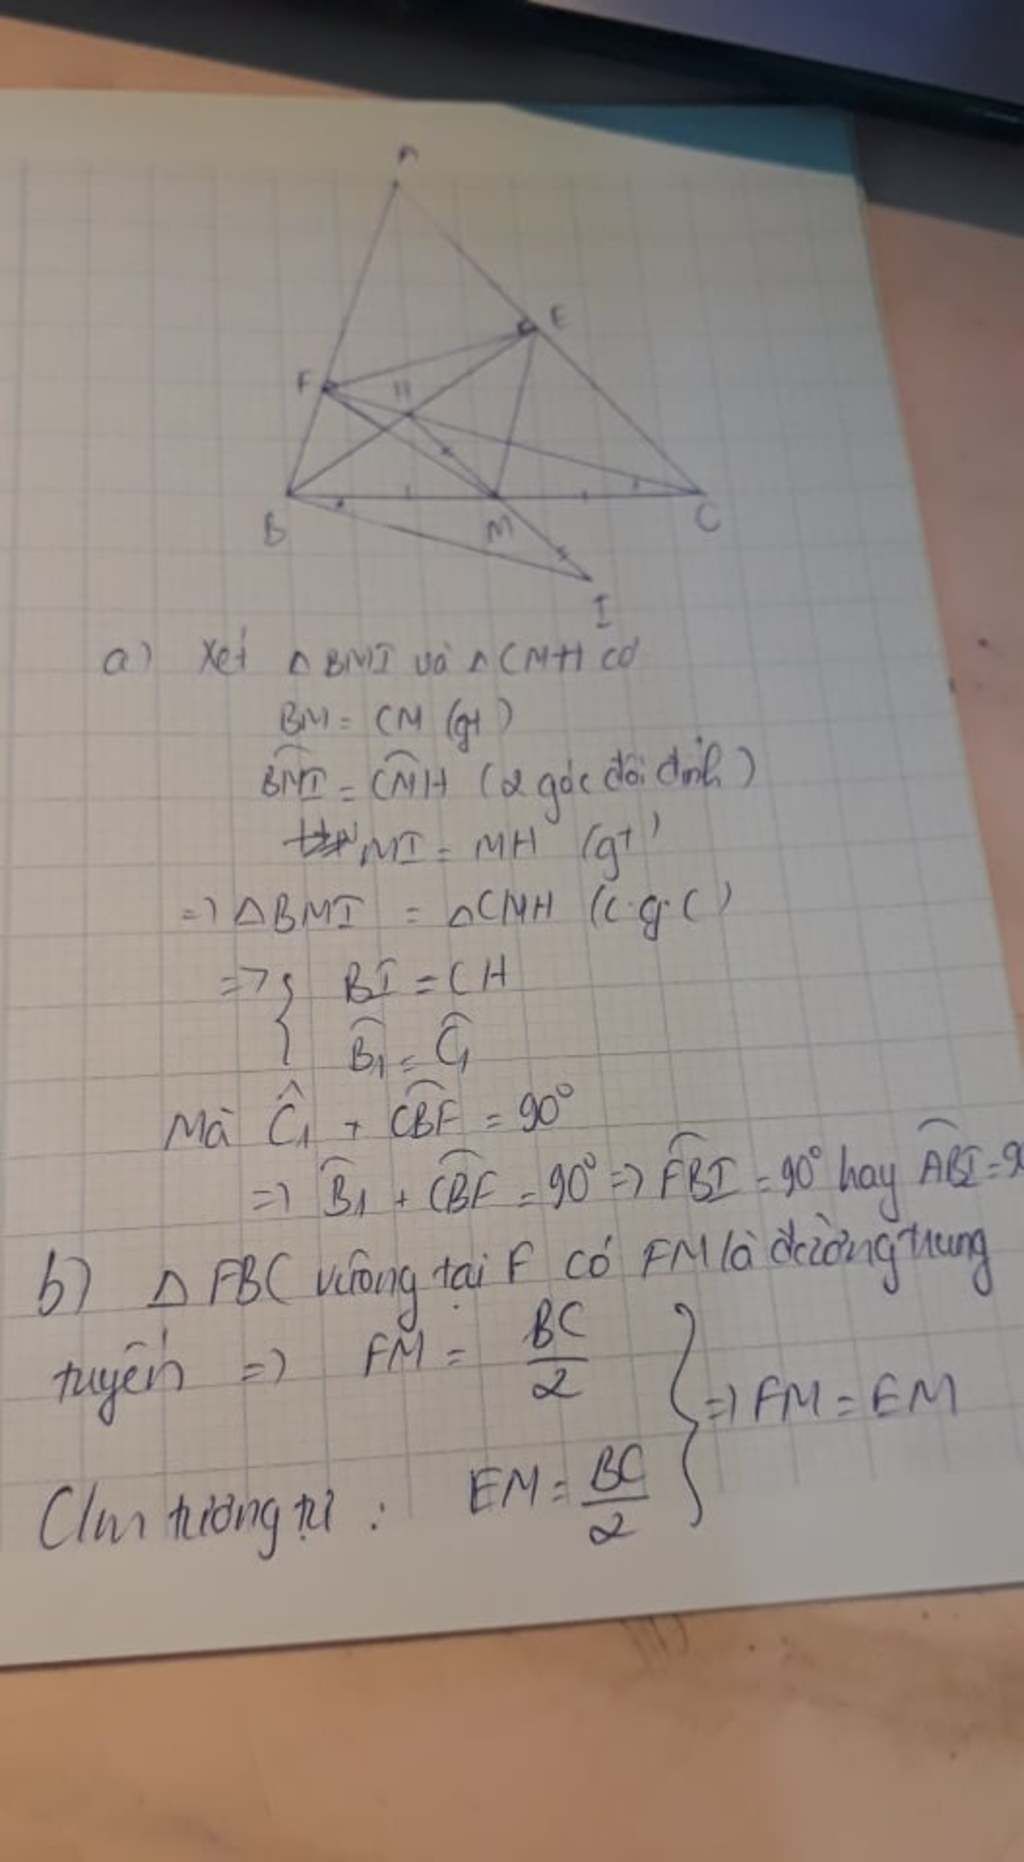 A
E
F
H
B
M
C
I
a) Xét △BMI và △CMH có
BM = CM (gt)
BMI = CMH (2 góc đối đỉnh)
MI = MH (gt)
=> △BMI = △CMH (c.g.c)
=> { BI = CH
B̂₁ = Ĉ₁
Mà Ĉ₁ + CBF = 90°
=> B̂₁ + CBF = 90° => FBI = 90° hay ABI = 90
b) △ FBC vuông tại F có FM là đường trung
tuyến => FM = BC/2
} => FM = EM
C/m tương tự : EM = BC/2